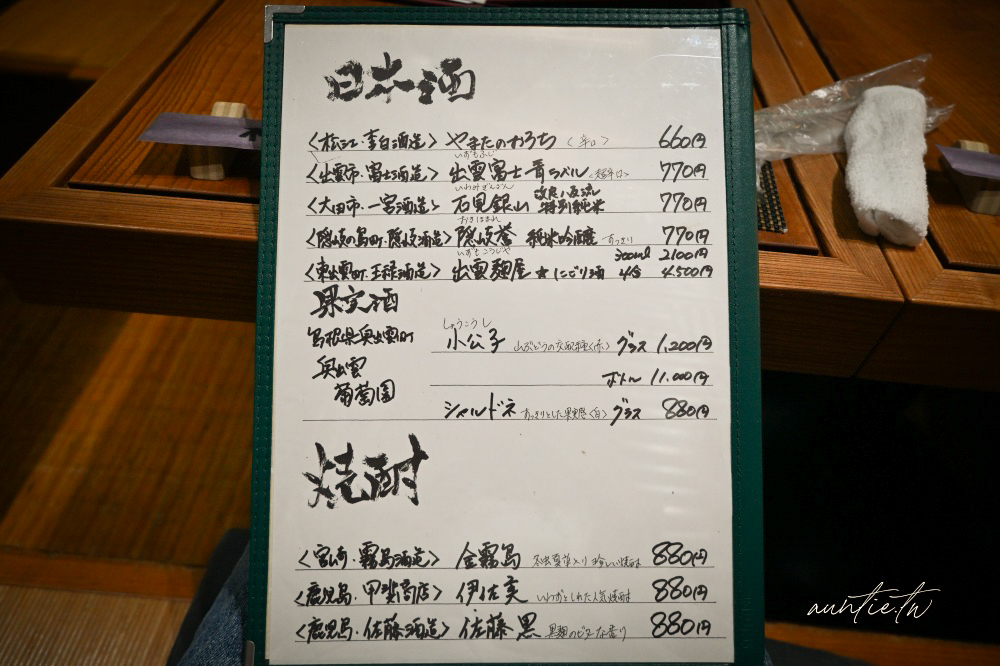 日本酒
〈松江・李白酒造〉 やまたのおろち 〈辛口〉 660円
いずもふじ
〈出雲市・富士酒造〉 出雲富士 青ラベル 〈超辛口〉 770円
いわみぎんざん
〈大田市・一宮酒造〉 石見銀山 改良八反流 特別純米 770円
おきほまれ
〈隠岐の島町・隠岐酒造〉 隠岐誉 純米吟醸 すっきり 770円
いずもこうじや 300ml 2100円
〈東出雲町・王禄酒造〉 出雲麹屋 ★にごり酒 4合 4,500円
果実酒
しょうこうし
島根県奥出雲町 小公子 山ぶどうの交配種〈赤〉 グラス 1,200円
奥出雲 ボトル 11,000円
葡萄園
シャルドネ すっきりとした果実感〈白〉 グラス 880円
焼酎
〈宮崎・霧島酒造〉 金霧島 冬虫夏草入り 珍しい焼酎 880円
〈鹿児島・甲斐商店〉 伊佐美 いわずとしれた人気焼酎 880円
〈鹿児島・佐藤酒造〉 佐藤 黒 黒麹の 香り 880円
auntie.tw